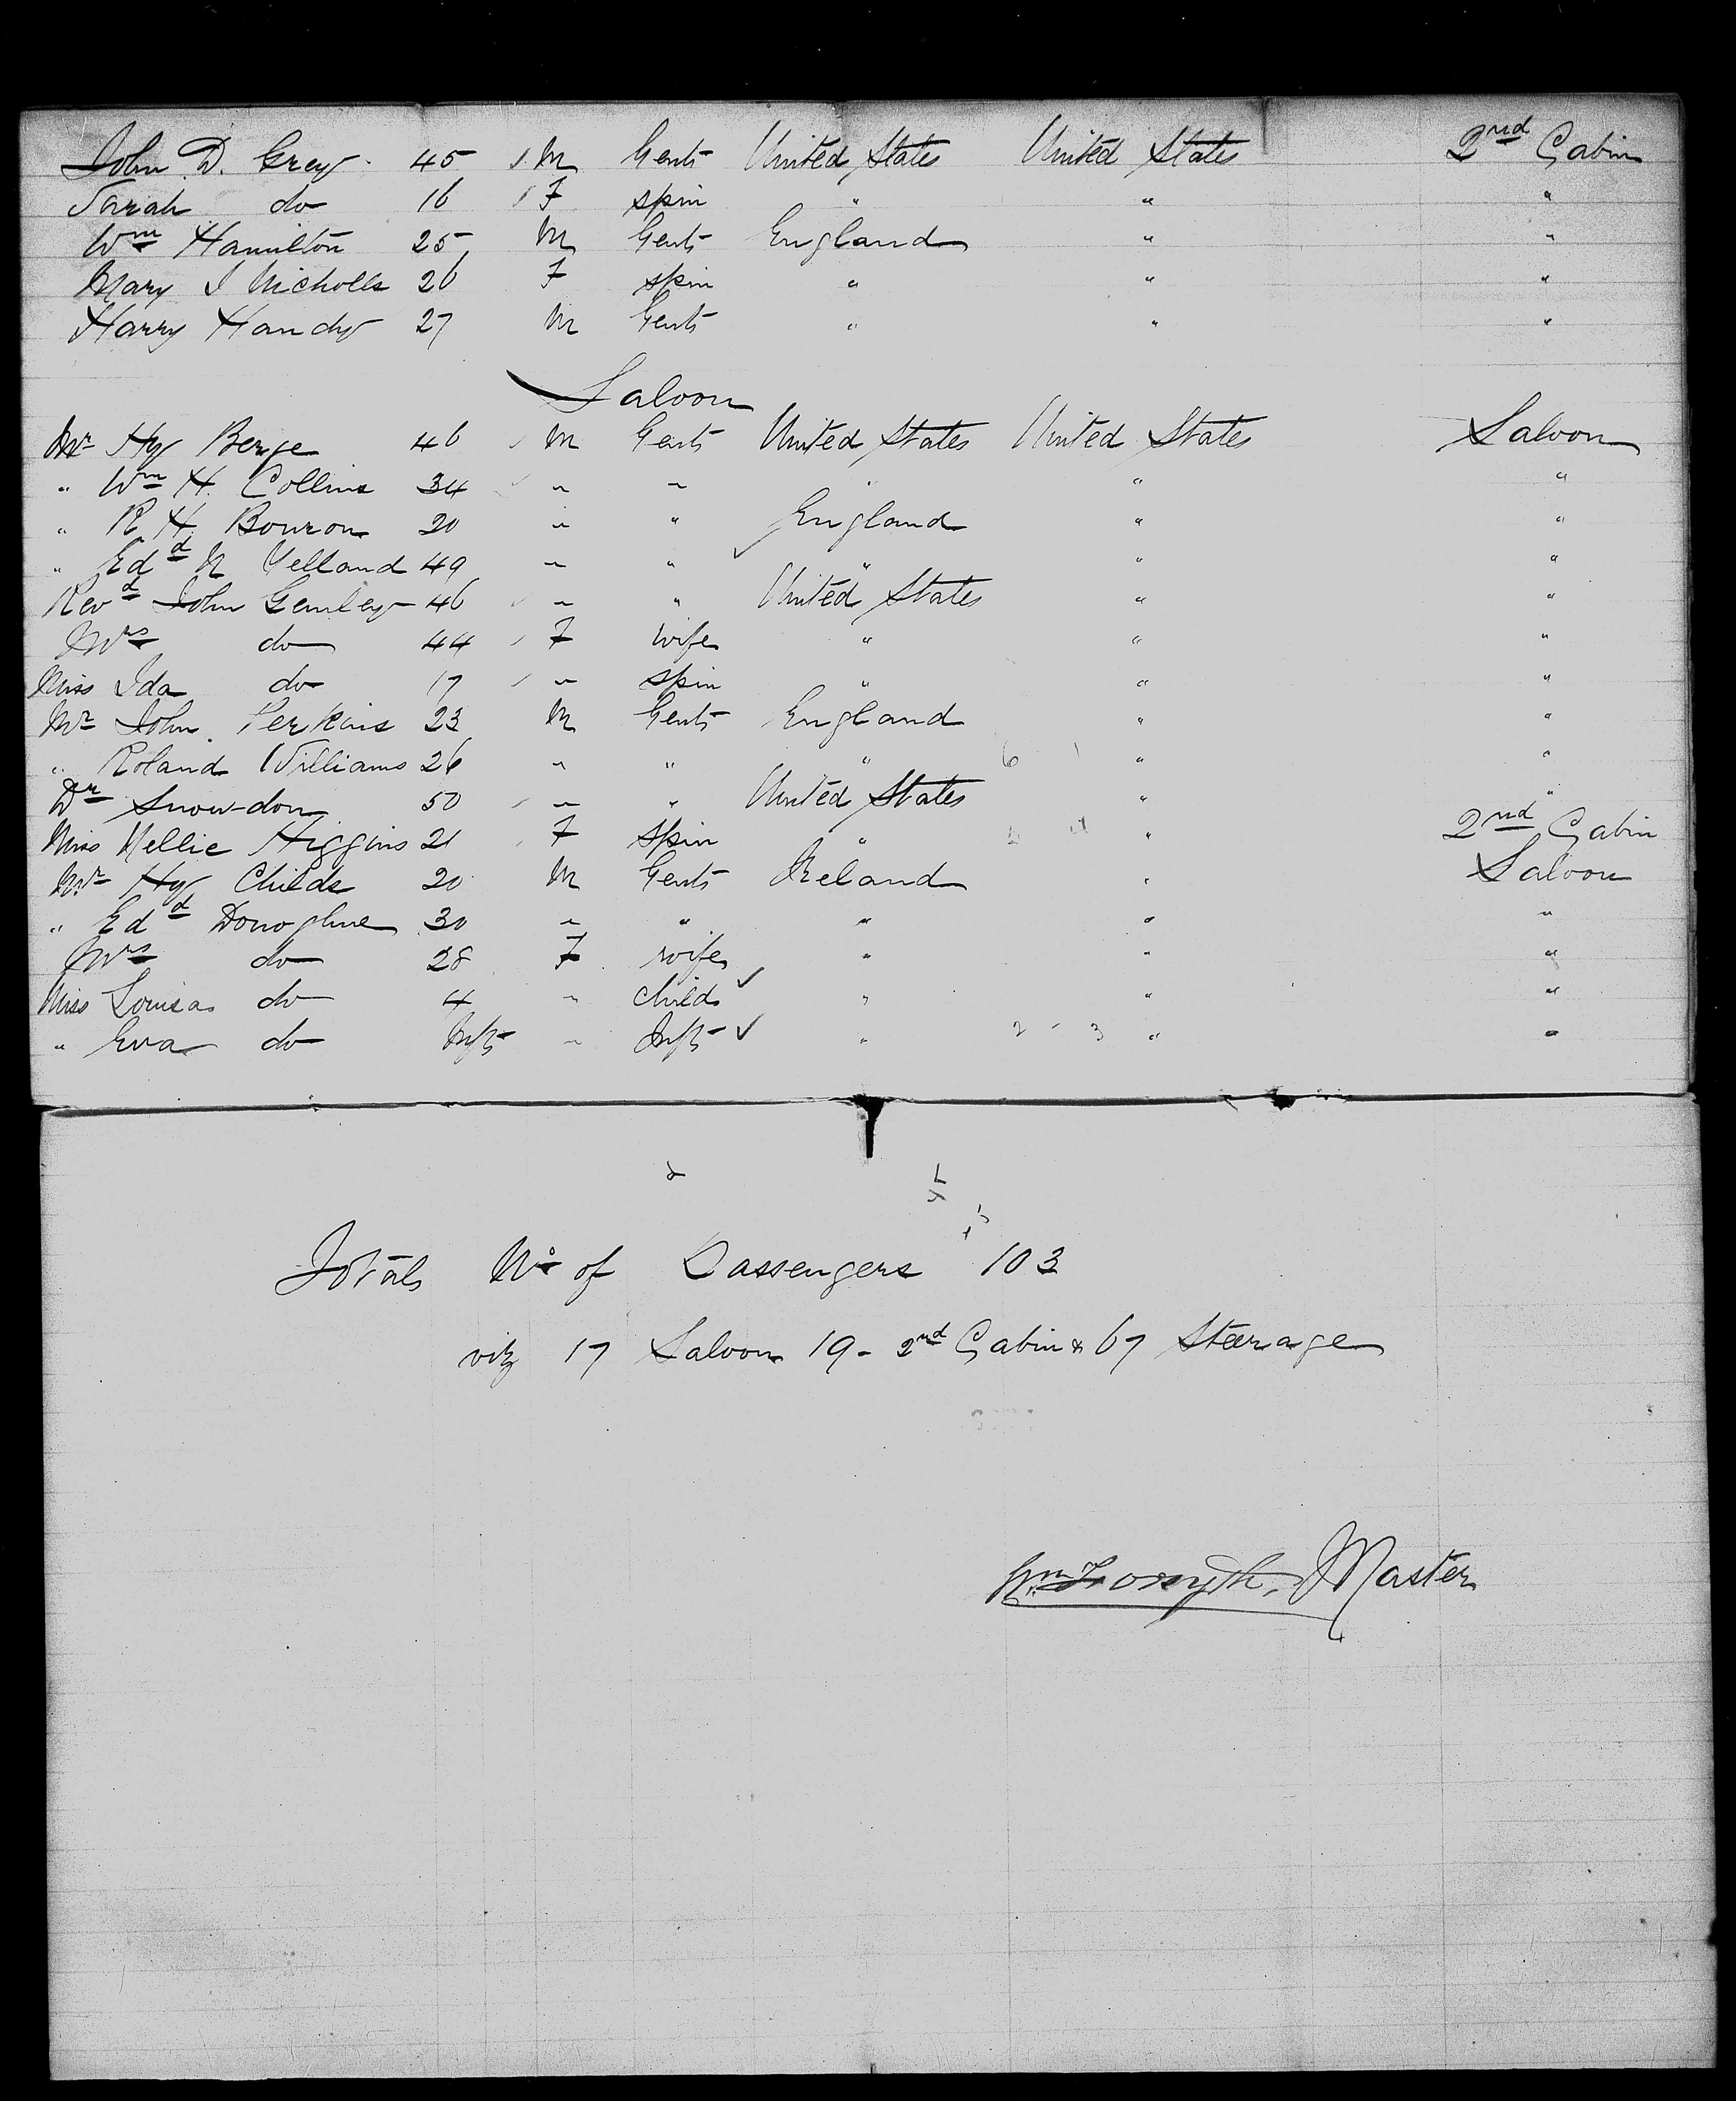 John D. Grey 45 M Gent United States United States 2nd Cabin
Sarah do 16 F spin " " "
Wm Hamilton 25 M Gent England " "
Mary J Nicholls 26 F spin " " "
Harry Handy 27 M Gent " " "
Saloon
Mr Hy Berge 46 M Gent United States United States Saloon
" Wm H. Collins 34 " " " " "
" R. H. Bouron 20 " " England " "
" Edd N Yelland 49 " " " " "
Revd John Gemley 46 " " United States " "
Mrs do 44 F wife " " "
Miss Ida do 17 " spin " " "
Mr John Perkins 23 M Gent England " "
" Roland Williams 26 " " " 6 1 " "
Dr Snowdon 50 " " United States " "
Miss Nellie Higgins 21 F spin " " 2nd Cabin
Mr Hy Childs 20 M Gent Ireland " Saloon
" Edd Donoghue 30 " " " " "
Mrs do 28 F wife " " "
Miss Louisa do 4 " child " " "
" Eva do Inft " Inft " 2 - 3 " "
Total No of Passengers 103
viz 17 Saloon 19 - 2nd Cabin & 67 Steerage
Wm Forsyth, Master